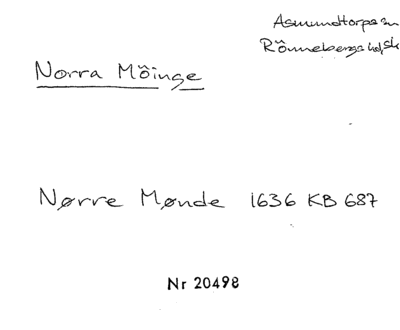 Asmundtorps sn
Rönnebergs hd, Sk
Norra Möinge
Nørre Mønde 1636 KB 687
Nr 20498